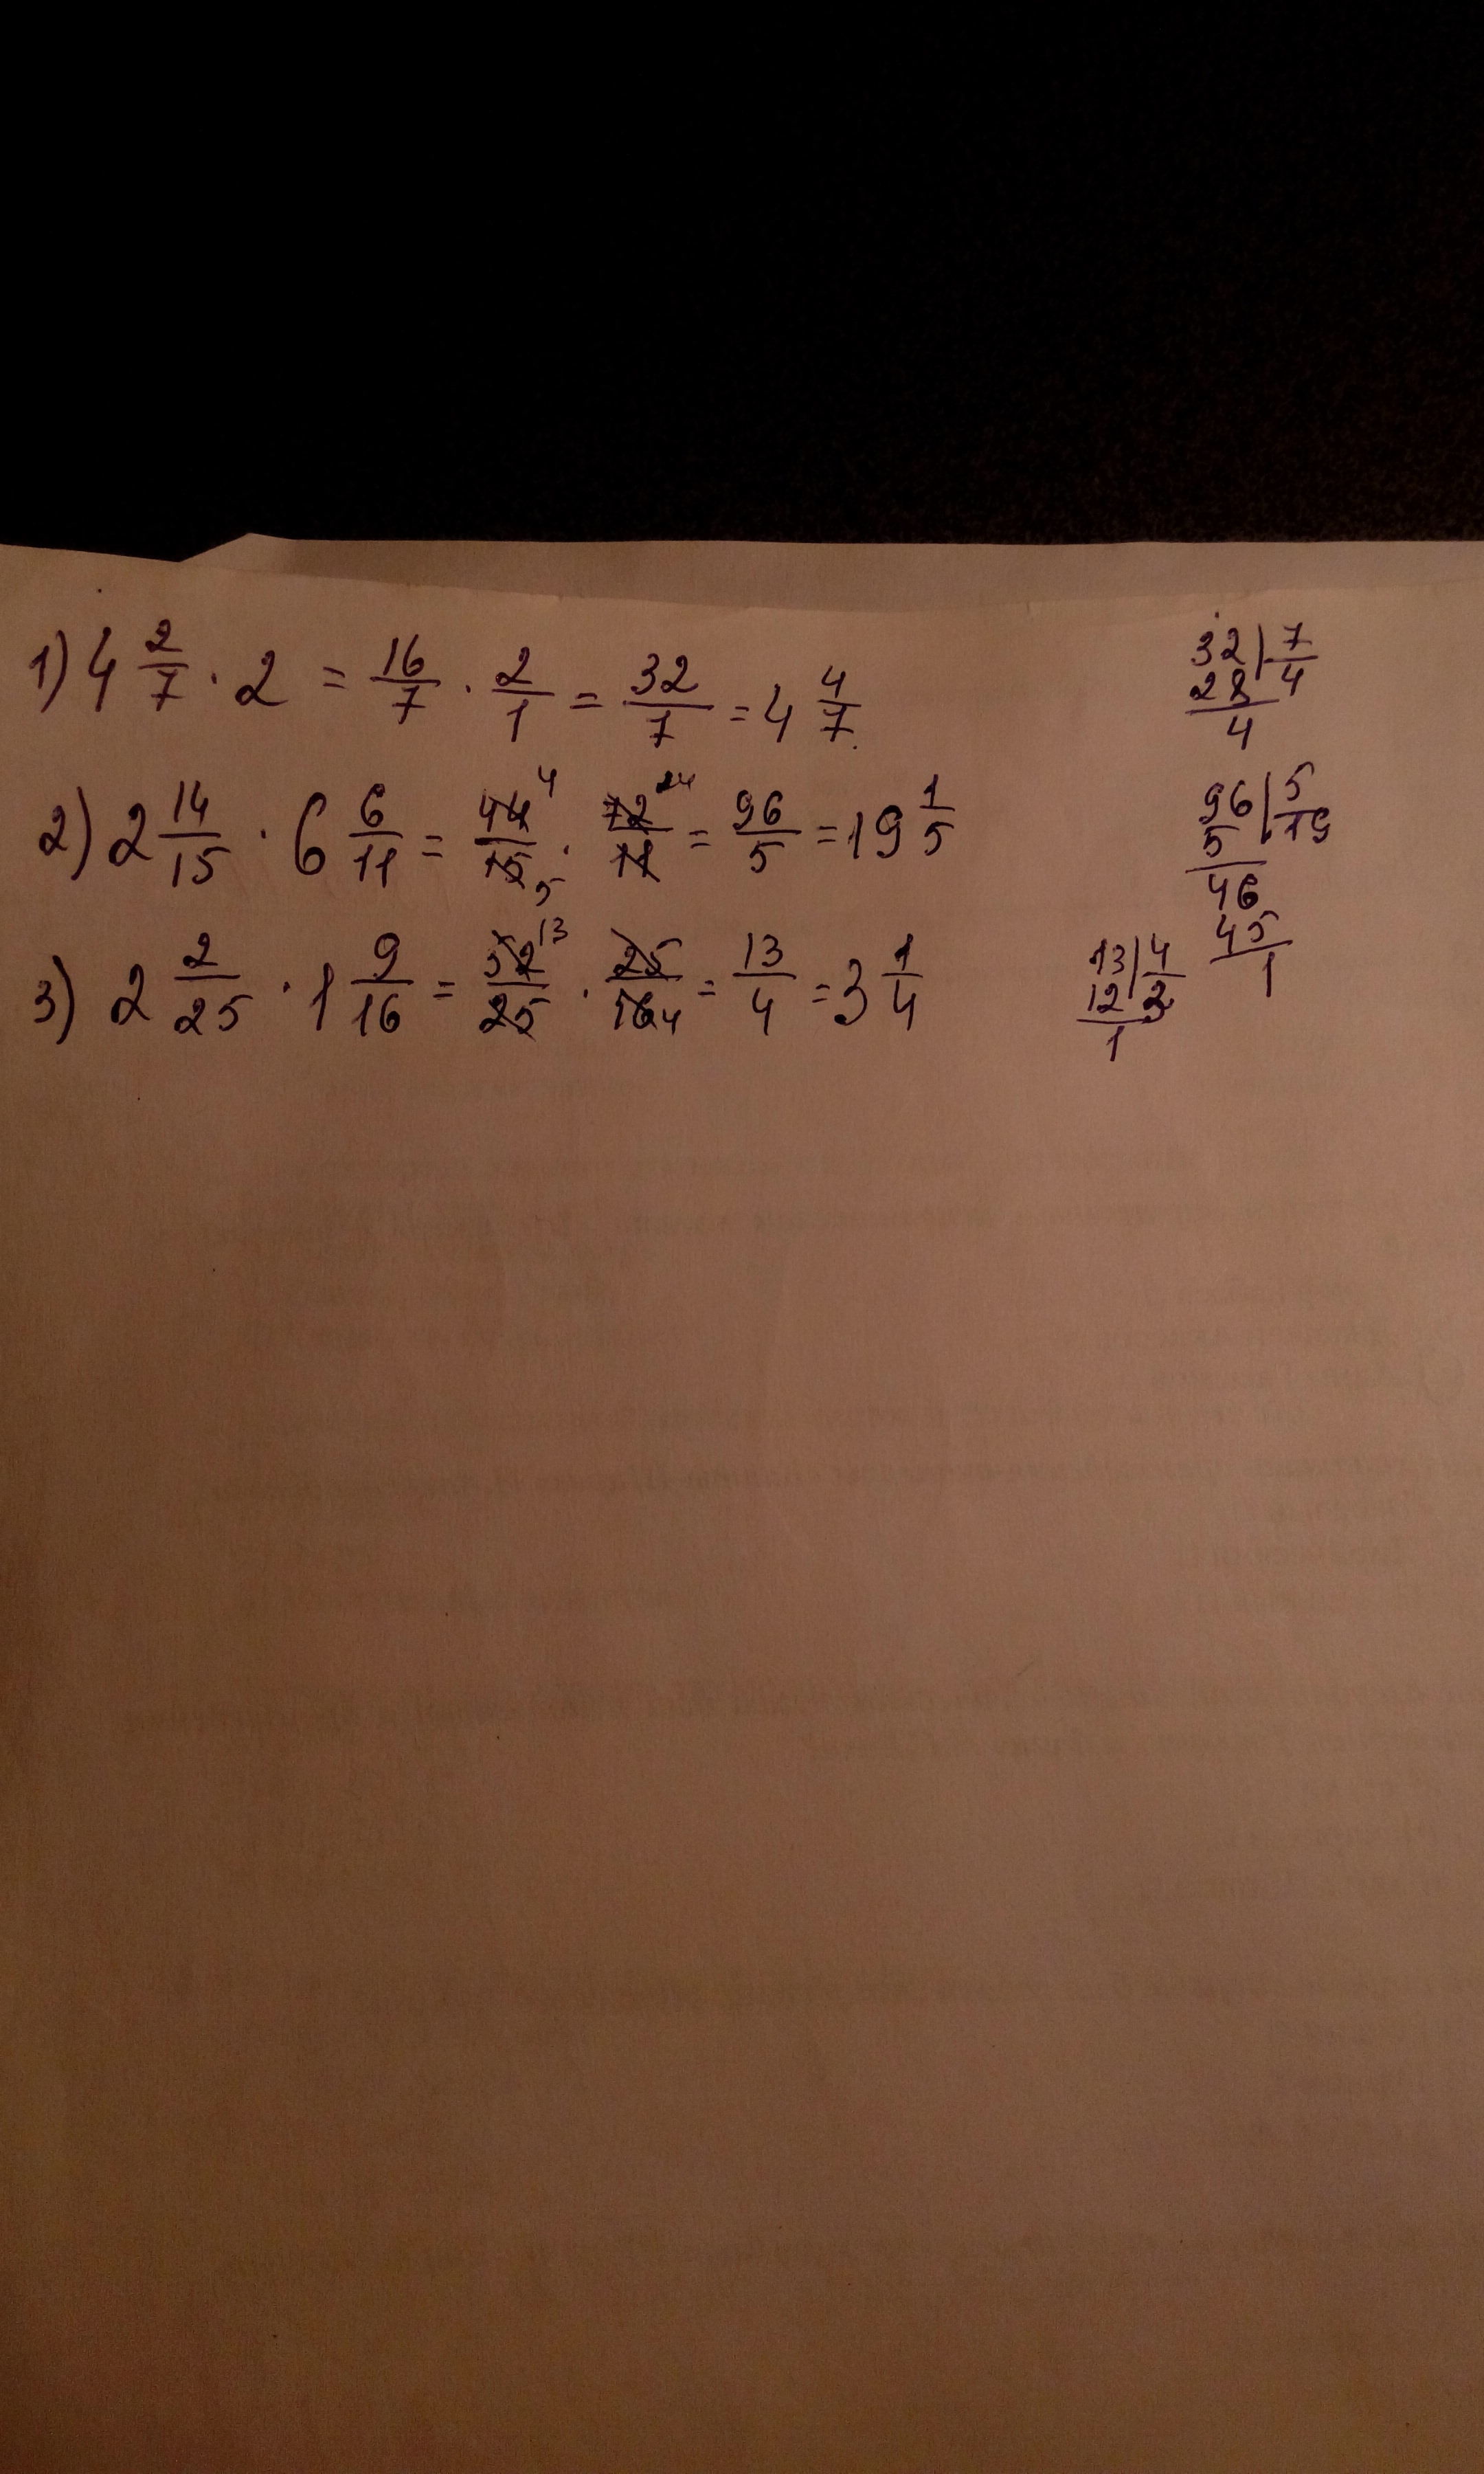 1) 4 2/7 · 2 = 16/7 · 2/1 = 32/7 = 4 4/7.
2) 2 14/15 · 6 6/11 = 44 4/15 5 · 72 24/11 = 96/5 = 19 1/5
3) 2 2/25 · 1 9/16 = 52 13/25 · 25/16 4 = 13/4 = 3 1/4
32 | 7
28 | 4
4
96 | 5
5 | 19
46
45
1
13 | 4
12 | 3
1